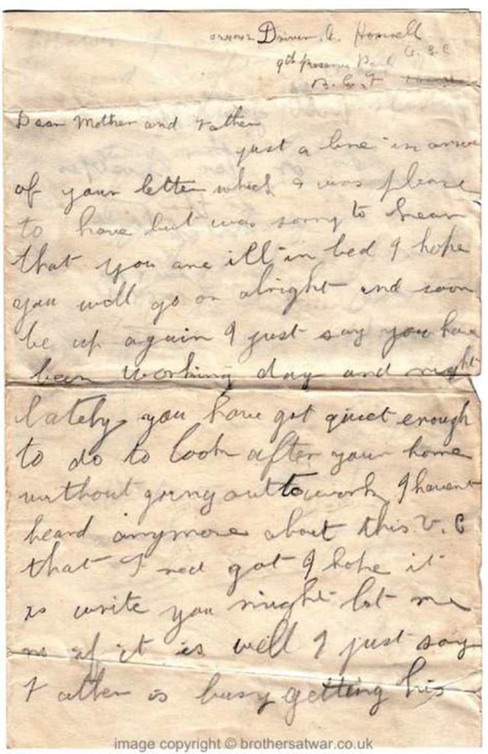 Driver. A.
A.S.C
9th Reserve Park
B.E.F
Dear Mother and Father
just a line in
of your letter which I was please
to have but was sorry to hear
that you are ill in bed I hope
you will go on alright and soon
be up again I just say you have
been working day and night
lately you have got quiet enough
to do to look after your home
without going out to work I havent
heard anymore about this V. C
that got I hope it
is write you might let me
if it is well I just say
Father is busy getting his
image copyright © brothersatwar.co.uk